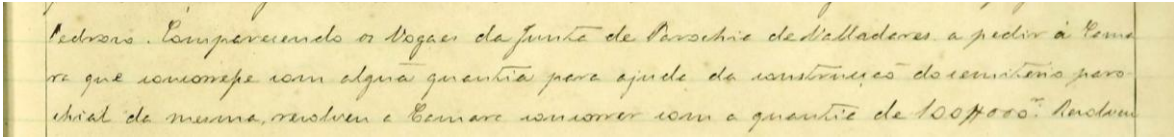 Pedroso. Comparecendo os Vogaes da Junta de Parochia de Valladares a pedir á Cama
ra que concorresse com alguã quantia para ajuda da construcçaõ do cemiterio paro-
chial da mesma, resolveu a Camara concorrer com a quantia de 100$000 rs. Resolveu